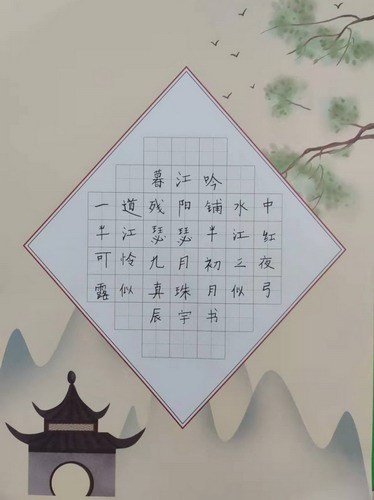 暮江吟
一道残阳铺水中
半江瑟瑟半江红
可怜九月初三夜
露似真珠月似弓
辰宇书